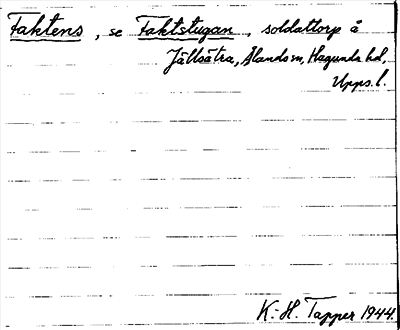 Faktens, se Faktstugan, soldattorp å
Jällsätra, Ålands sn, Hagunda hd,
Upps. l.
K.-H. Tapper 1944.